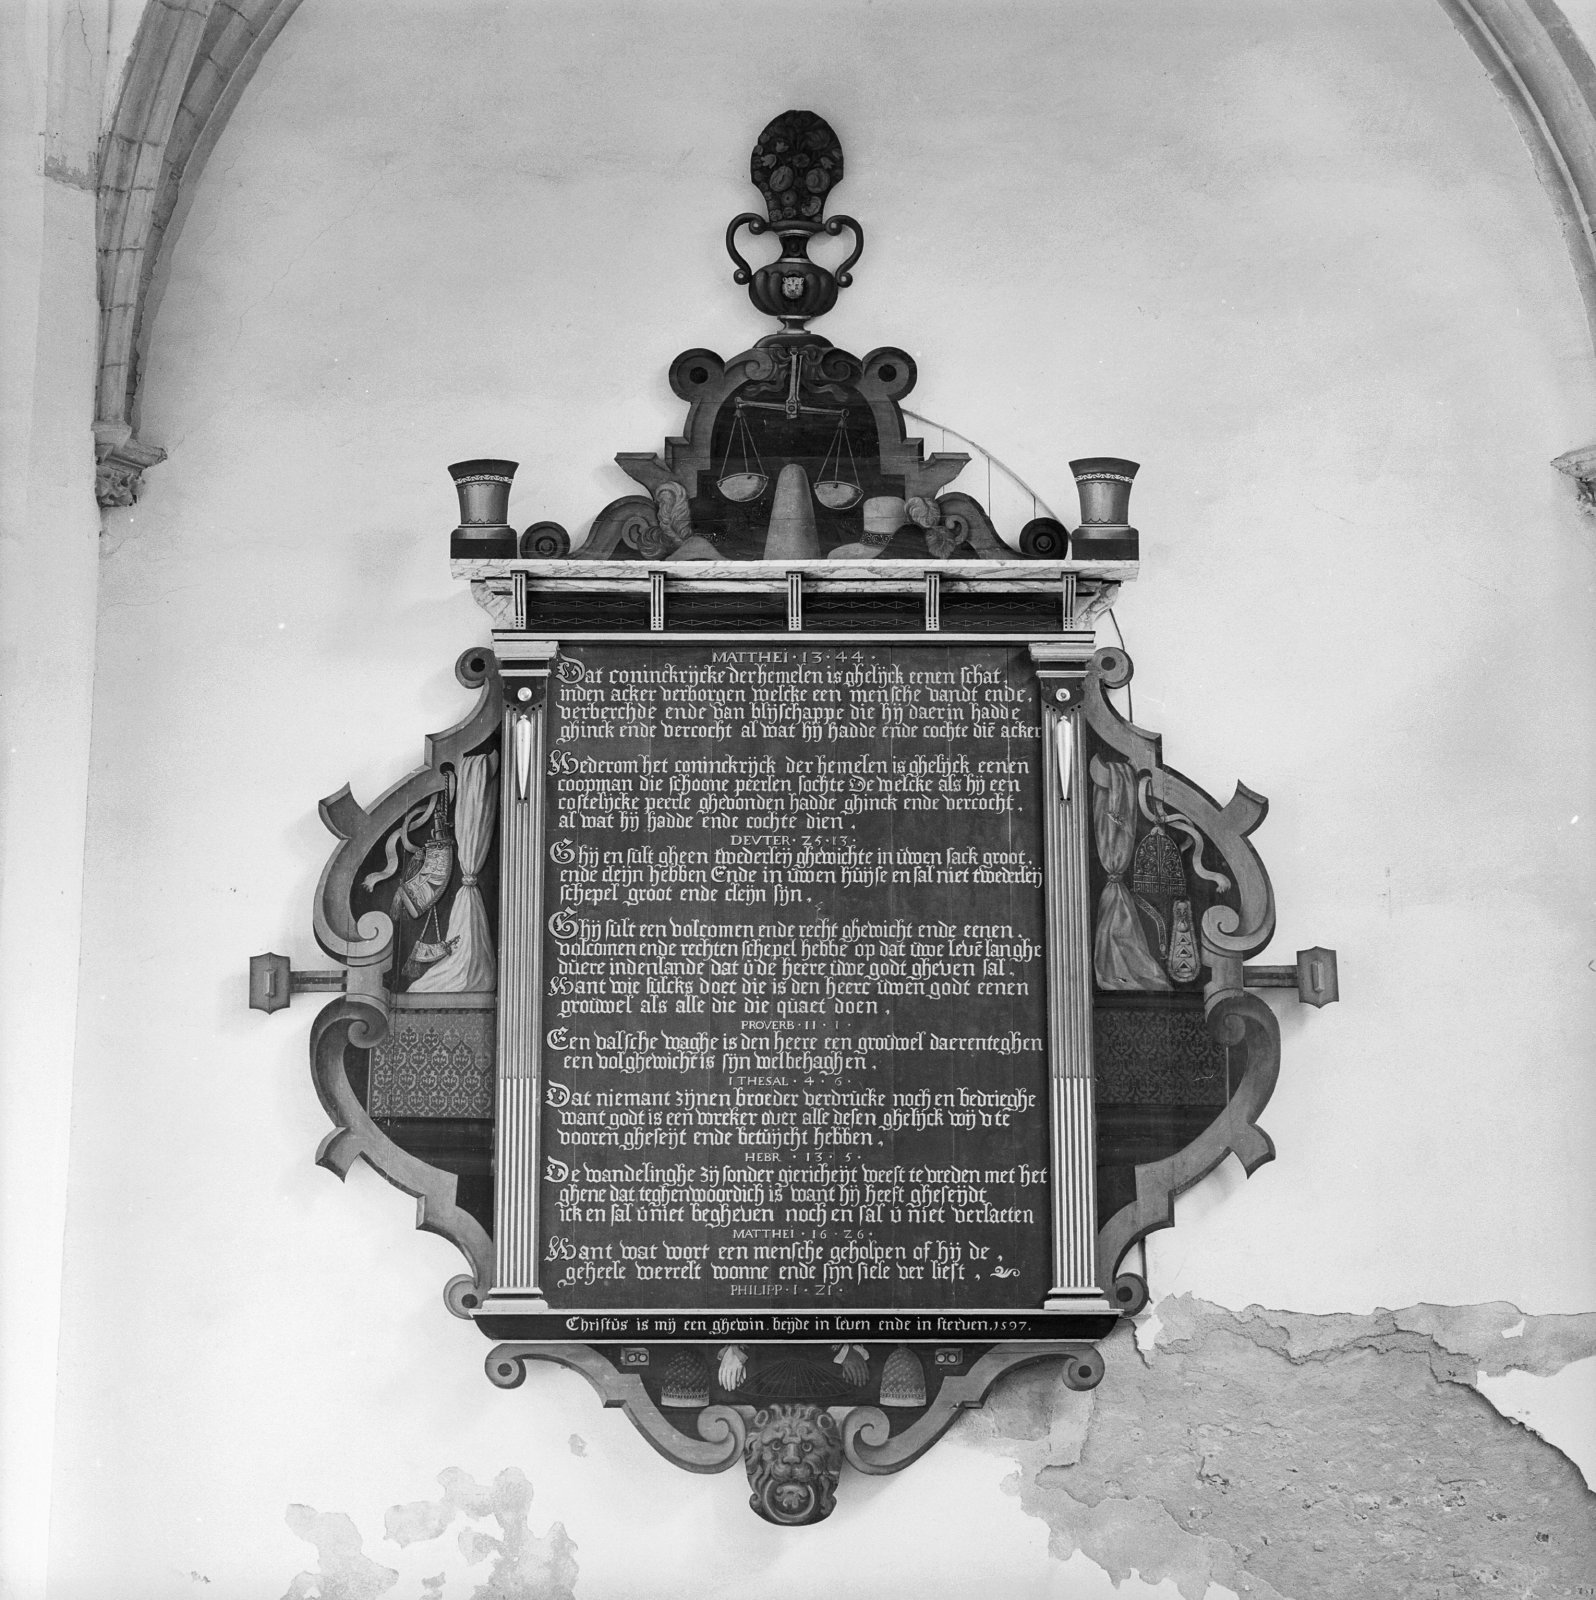 MATTHEI·13·44·
Dat coninckrijcke der hemelen is ghelijck eenen schat,
inden acker verborgen welcke een mensche vandt ende,
verberchde ende van blijschappe die hij daerin hadde
ghinck ende vercocht al wat hij hadde ende cochte diē acker
Wederom het coninckrijck der hemelen is ghelijck eenen
coopman die schoone peerlen sochte De welcke als hij een
costelijcke peerle ghevonden hadde ghinck ende vercocht,
al wat hij hadde ende cochte dien.
DEVTER·25·13·
Ghij en sult gheen twederleij ghewichte in ůwen sack groot,
ende cleijn hebben Ende in ůwen hůijse en sal niet twederleij
schepel groot ende cleijn sijn.
Ghij sult een volcomen ende recht ghewicht ende eenen,
volcomen ende rechten schepel hebbē op dat ůwe levē langhe
důere inden lande dat ů de heere ůwe godt gheven sal.
Want wie sulcks doet die is den heere ůwen godt eenen
groůwel als alle die die quaet doen.
PROVERB·11·1·
Een valsche waghe is den heere een groůwel daerenteghen
een vol ghewicht is sijn welbehaghen.
1 THESAL·4·6·
Dat niemant zijnen broeder verdrůcke noch en bedrieghe
want godt is een wreker over alle desen ghelijck wij v tē
vooren gheseijt ende betůijcht hebben.
HEBR·13·5·
De wandelinghe zij sonder giericheijt weest te vreden met het
ghene dat teghenwoordich is want hij heeft gheseijdt
ick en sal ů niet begheven noch en sal ů niet verlaeten
MATTHEI·16·26·
Want wat wort een mensche geholpen of hij de,
geheele werrelt wonne ende sijn siele ver liest,
PHILIPP·1·21·
Christůs is mij een ghewin. beijde in leven ende in sterven. 1597.